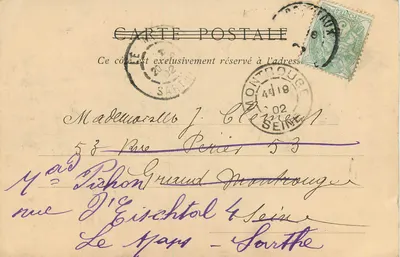 CARTE POSTALE
Ce côté est exclusivement réservé à l'adresse
MONTROUGE
02
SEINE
Mademoiselle J.
53 Rue Périer 53
Grand Montrouge
Pichon
rue d'Eischtal 4 Seine
Le Mans - Sarthe